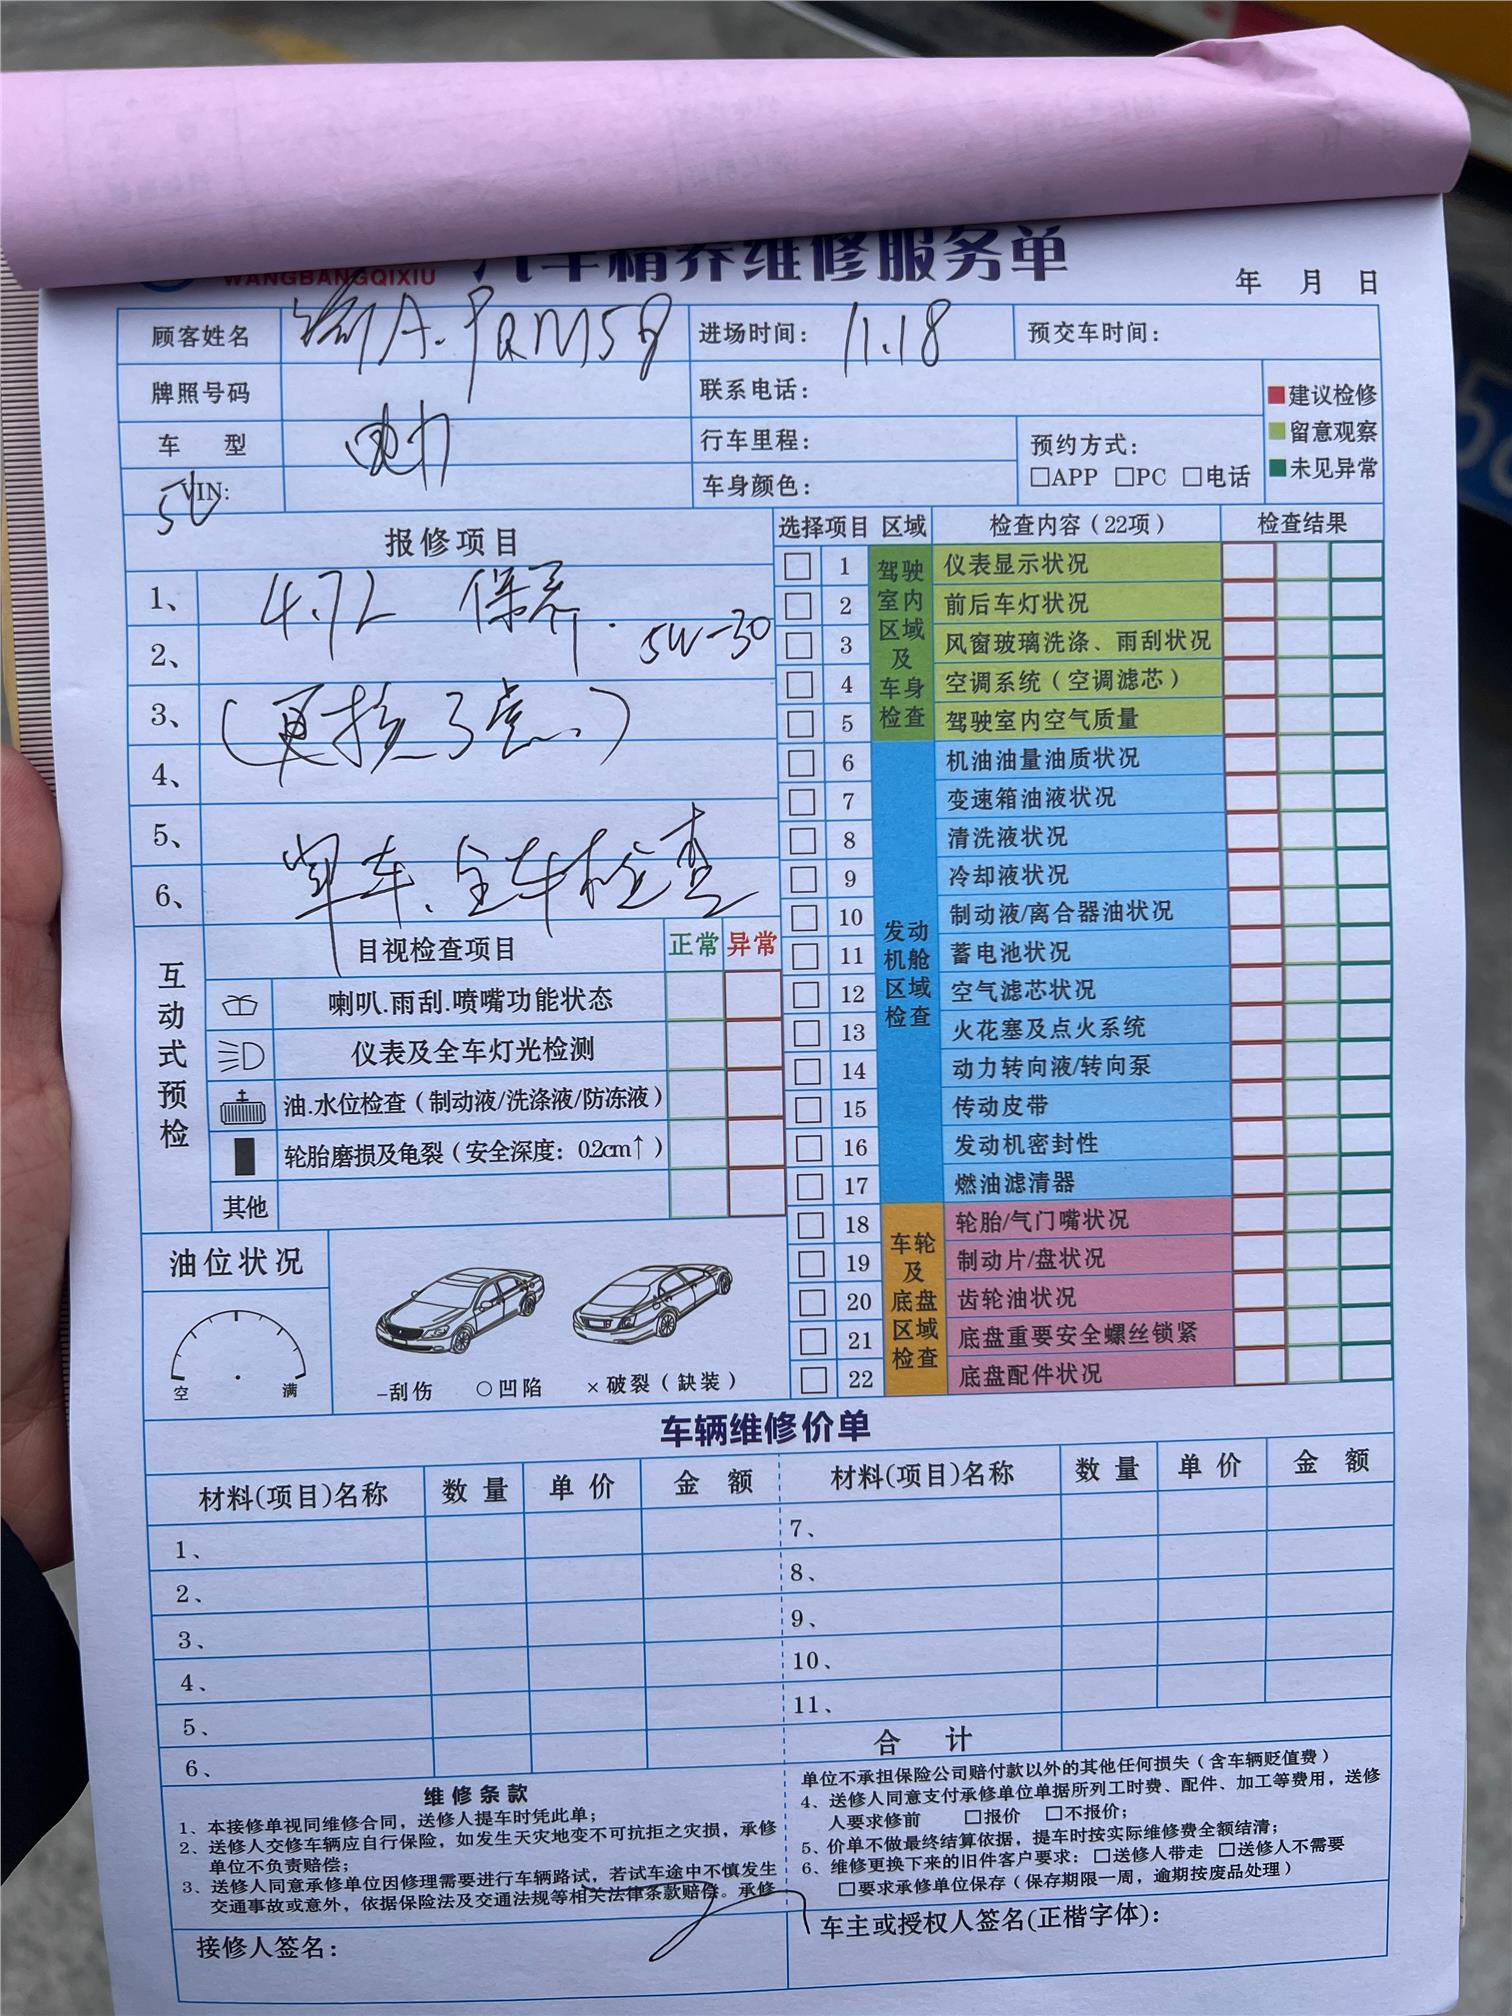 WANGBANGQIXIU 汽车精养维修服务单
年 月 日
顾客姓名 进场时间: 11.18 预交车时间:
牌照号码 联系电话:
建议检修
留意观察
未见异常
车 型 行车里程: 预约方式:
□APP □PC □电话
VIN: 车身颜色:
报修项目
1、 4.7L 保养.
2、 5W-30
3、
4、
5、
6、 全车检查
选择项目 区域 检查内容(22项) 检查结果
驾驶室内区域及车身检查
1 仪表显示状况
2 前后车灯状况
3 风窗玻璃洗涤、雨刮状况
4 空调系统(空调滤芯)
5 驾驶室内空气质量
发动机舱区域检查
6 机油油量油质状况
7 变速箱油液状况
8 清洗液状况
9 冷却液状况
10 制动液/离合器油状况
11 蓄电池状况
12 空气滤芯状况
13 火花塞及点火系统
14 动力转向液/转向泵
15 传动皮带
16 发动机密封性
17 燃油滤清器
车轮及底盘区域检查
18 轮胎/气门嘴状况
19 制动片/盘状况
20 齿轮油状况
21 底盘重要安全螺丝锁紧
22 底盘配件状况
互动式预检
目视检查项目 正常 异常
喇叭.雨刮.喷嘴功能状态
仪表及全车灯光检测
油.水位检查(制动液/洗涤液/防冻液)
轮胎磨损及龟裂(安全深度: 0.2cm↑)
其他
油位状况
空 满
-刮伤 ○凹陷 ×破裂(缺装)
车辆维修价单
材料(项目)名称 数量 单价 金额 材料(项目)名称 数量 单价 金额
1、 7、
2、 8、
3、 9、
4、 10、
5、 11、
6、 合 计
维修条款
1、本接修单视同维修合同，送修人提车时凭此单；
2、送修人交修车辆应自行保险，如发生天灾地变不可抗拒之灾损，承修
单位不负责赔偿；
3、送修人同意承修单位因修理需要进行车辆路试，若试车途中不慎发生
交通事故或意外，依据保险法及交通法规等相关法律条款赔偿。承修
单位不承担保险公司赔付款以外的其他任何损失(含车辆贬值费)
4、送修人同意支付承修单位单据所列工时费、配件、加工等费用，送修
人要求修前 □报价 □不报价；
5、价单不做最终结算依据，提车时按实际维修费全额结清；
6、维修更换下来的旧件客户要求：□送修人带走 □送修人不需要
□要求承修单位保存(保存期限一周，逾期按废品处理)
接修人签名: 车主或授权人签名(正楷字体):